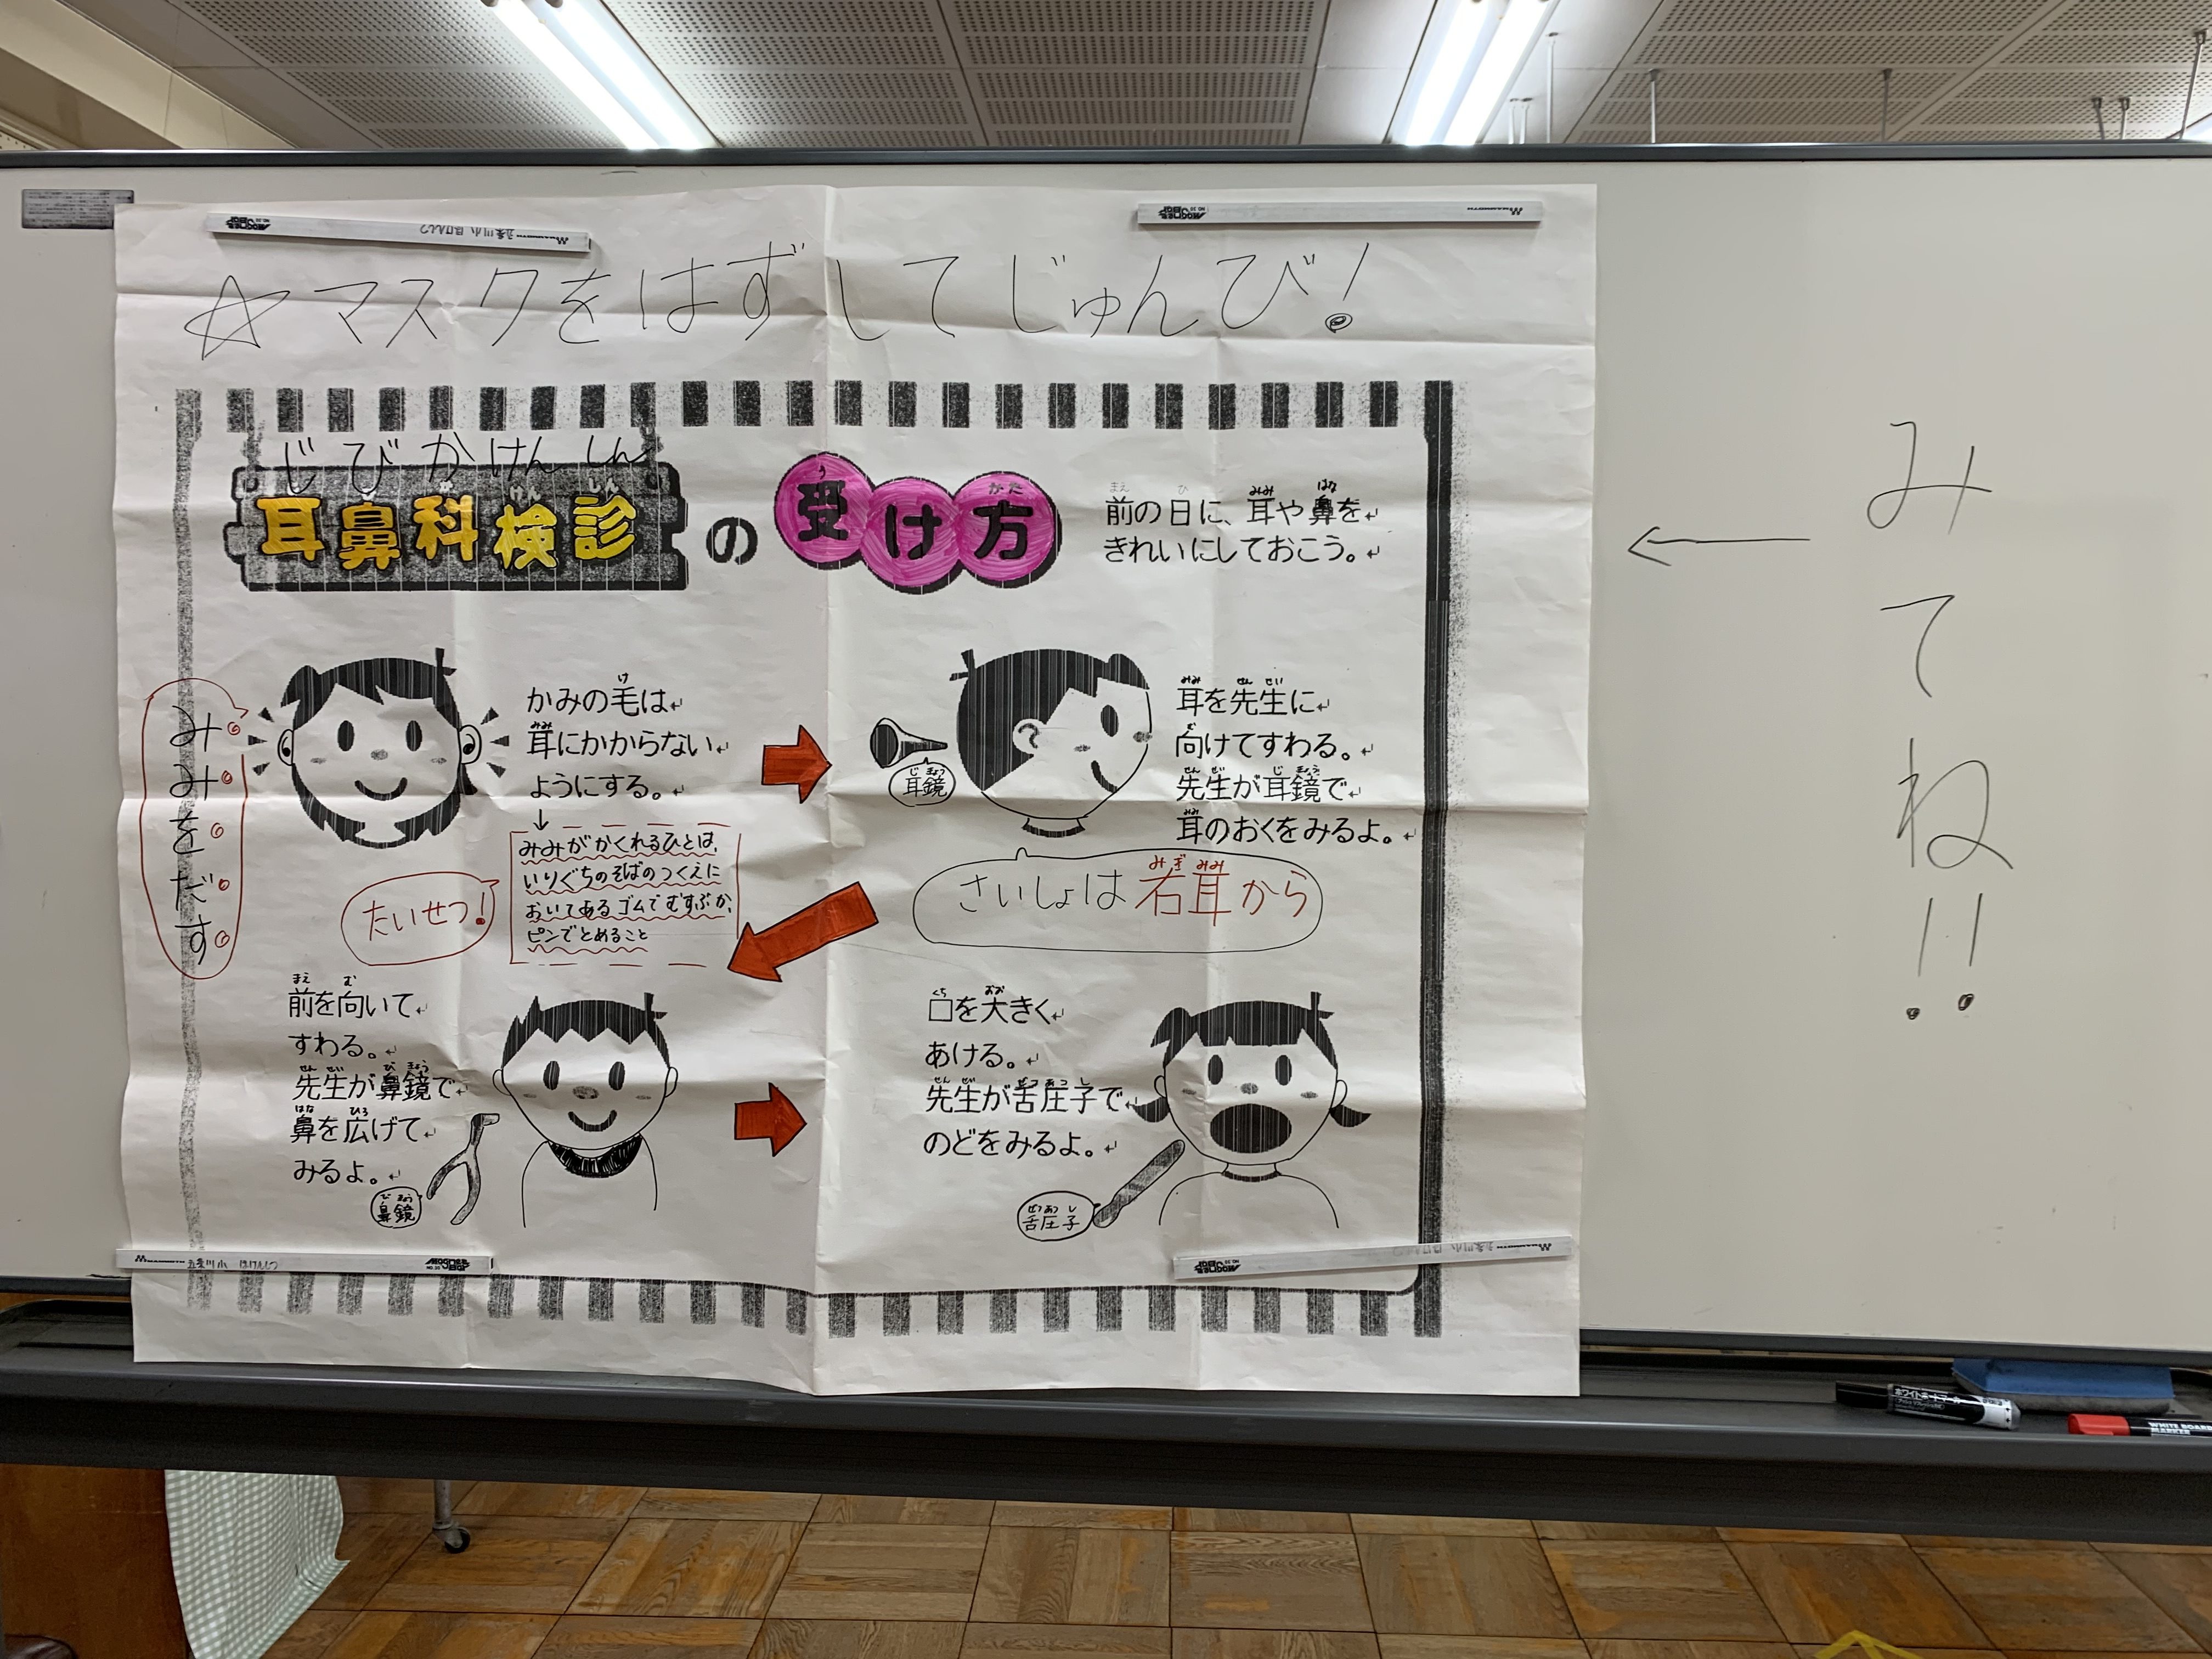 ☆マスクをはずしてじゅんび!
じびかけんしん
耳鼻科検診の受け方
前の日に、耳や鼻を
きれいにしておこう。
みみをだす
かみの毛は
耳にかからない
ようにする。
↓
みみがかくれるひとは、
いりぐちのそばのつくえに
おいてあるゴムでむすぶか、
ピンでとめること
たいせつ!
耳を先生に
向けてすわる。
先生が耳鏡で
耳のおくをみるよ。
耳鏡
さいしょは右耳から
前を向いて
すわる。
先生が鼻鏡で
鼻を広げて
みるよ。
鼻鏡
口を大きく
あける。
先生が舌圧子で
のどをみるよ。
舌圧子
← みてね!!
五条川小 ほけんしつ
ホワイトボードマーカー
WHITE BOARD
MARKER